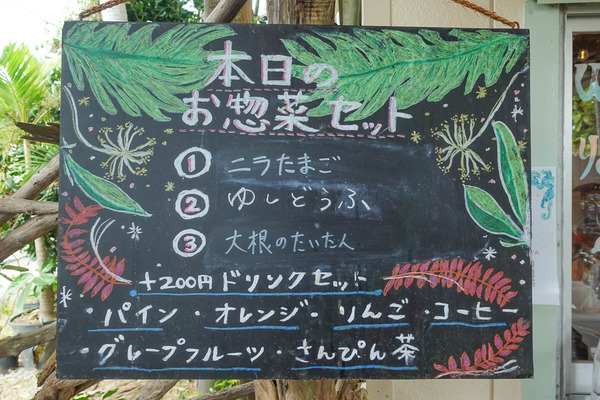 本日の
お惣菜セット
① ニラたまご
② ゆしどうふ、
③ 大根のたいたん
+200円ドリンクセット
・パイン・オレンジ・りんご・コーヒー
・グレープフルーツ・さんぴん茶